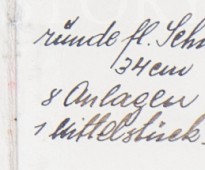 runde fl. Sch
34cm
8 Anlagen
1 Mittelstück.